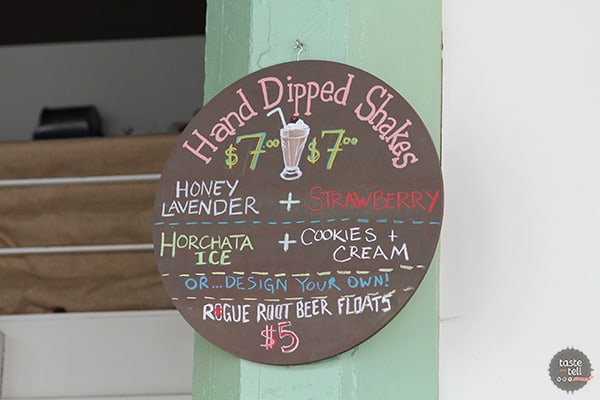 Hand Dipped Shakes
$7.00 $7.00
HONEY LAVENDER + STRAWBERRY
HORCHATA ICE + COOKIES + CREAM
OR...DESIGN YOUR OWN!
ROGUE ROOT BEER FLOATS
$5
taste
and
tell